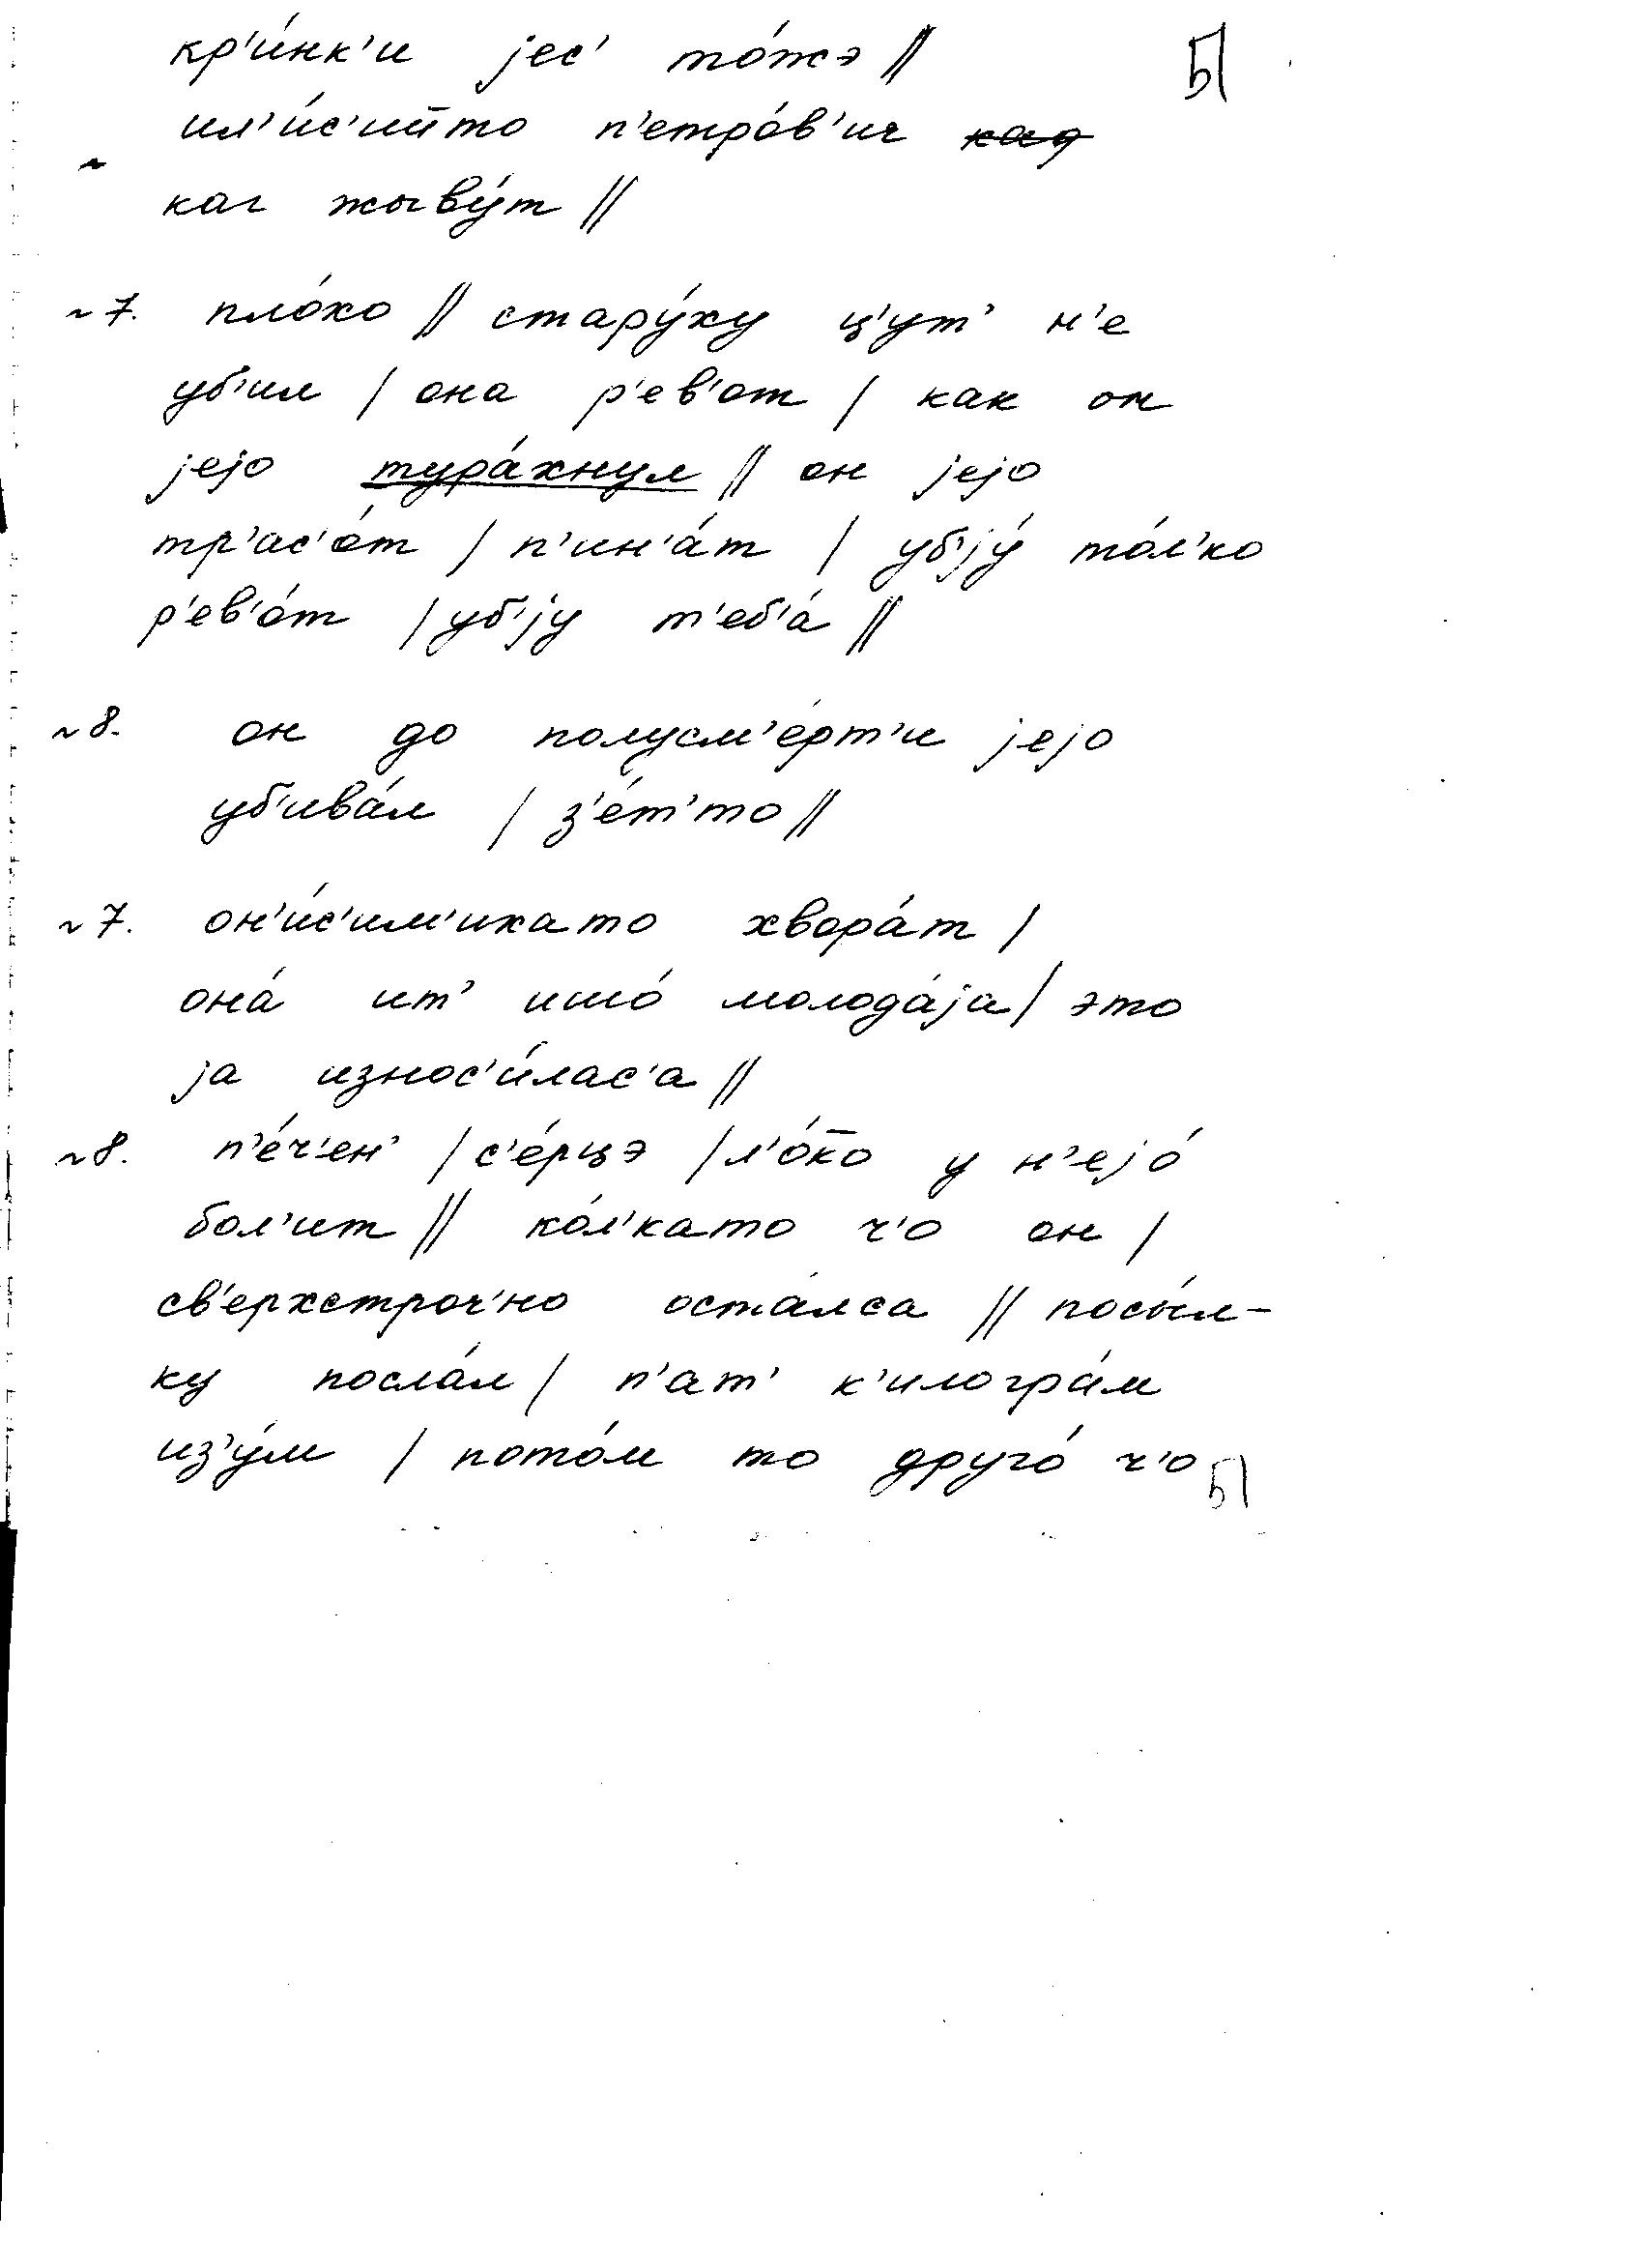 кр'и́нк'и jес' то́жэ //
ил'и́с'ийто п'етро́в'ич кад
каг жыву́т //
~ 7. пло́хо // стару́ху ц'ут' н'е
уб'ил / она р'ев'от / как он
jejo тура́хнул // он jejo
тр'ас'о́т / п'ин'а́т / уб'jу́ то́л'ко
р'ев'о́т / уб'jу т'еб'а́ //
~ 8. он до полусм'е́рт'и jejo
уб'ива́л / з'е́т'то //
~ 7. он'и́с'им'ихато хвора́т /
она́ ит' ишо́ молода́jа / это
jа износ'и́лас'а //
~ 8. п'е́ч'ен' / с'е́рцэ / л'о́к̄о у н'еjо́
бол'ит // ко́л'като ч'о он /
св'ерхстроч'но оста́лса // посы́л-
ку посла́л / п'ат' к'илогра́м
из'у́м / пото́м то друго́ ч'о